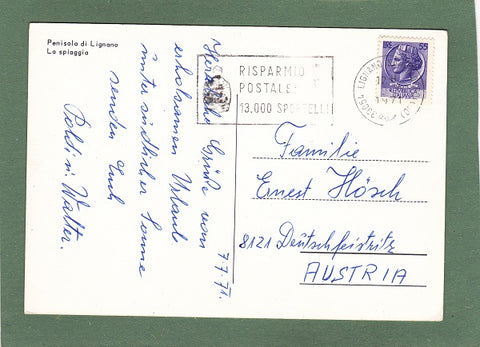 Penisola di Lignano
La spiaggia
7.7.71.
Herzliche Grüße vom
erholsamen Urlaub
unter südlicher Sonne
senden Euch
Poldi u. Walter.
RISPARMIO
POSTALE:
13.000 SPORTELLI
33054 LIGNANO
55
Familie
Ernest Hösch
8121 Deutschfeistritz
AUSTRIA